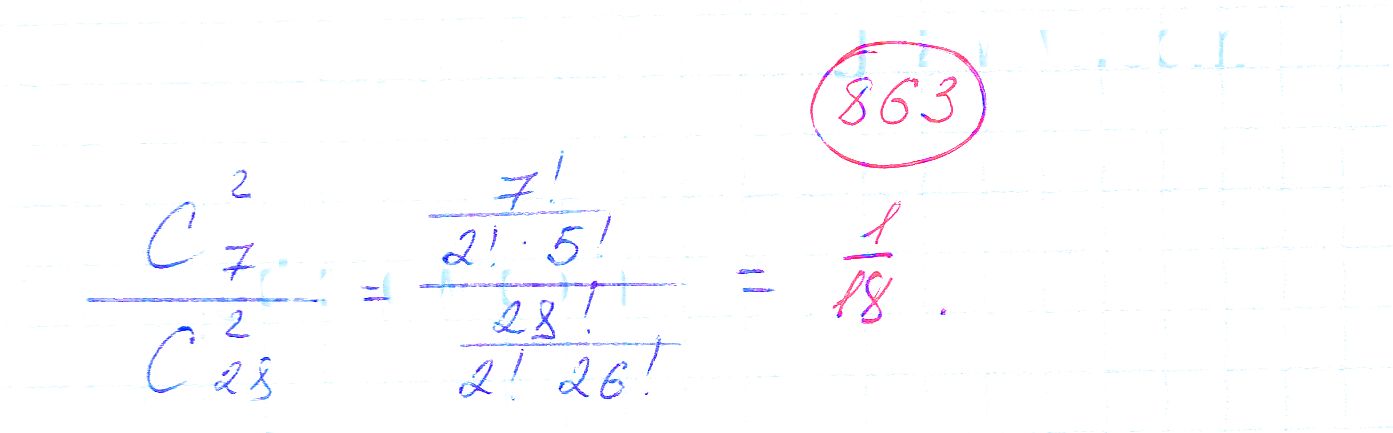 863
C 2 7 / C 2 28 = 7! / 2! · 5! / 28! / 2! 26! = 1 / 18 .